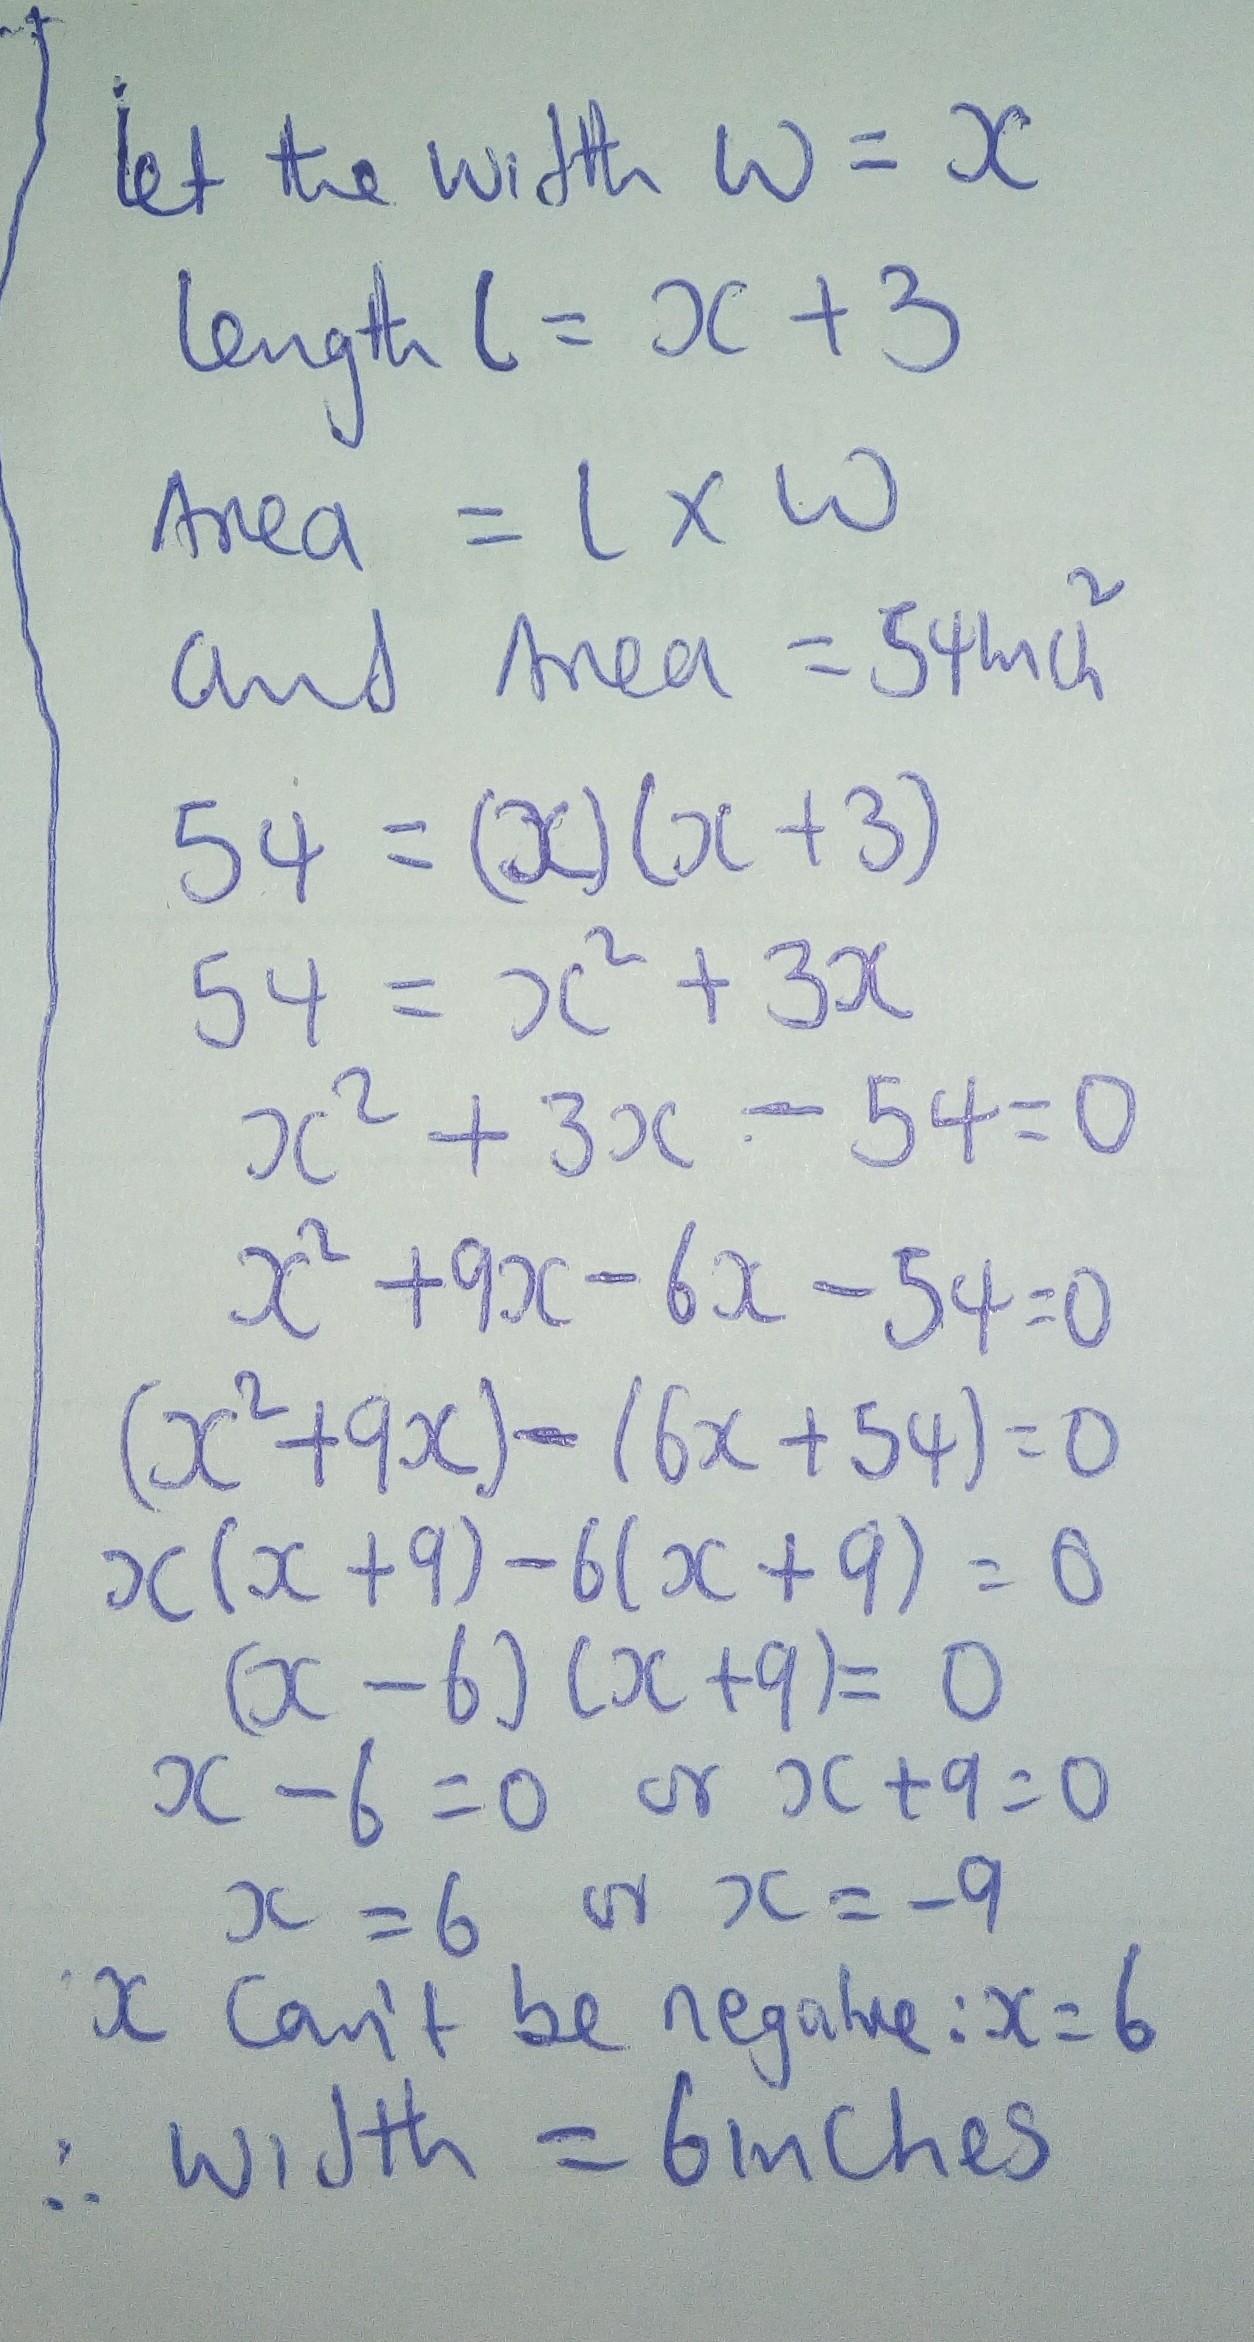 let the width W = x
length l = x + 3
Area = l x W
and Area = 54inch²
54 = (x)(x + 3)
54 = x² + 3x
x² + 3x - 54 = 0
x² + 9x - 6x - 54 = 0
(x² + 9x) - (6x + 54) = 0
x(x + 9) - 6(x + 9) = 0
(x - 6) (x + 9) = 0
x - 6 = 0 or x + 9 = 0
x = 6 or x = -9
x can't be negative : x = 6
∴ width = 6inches